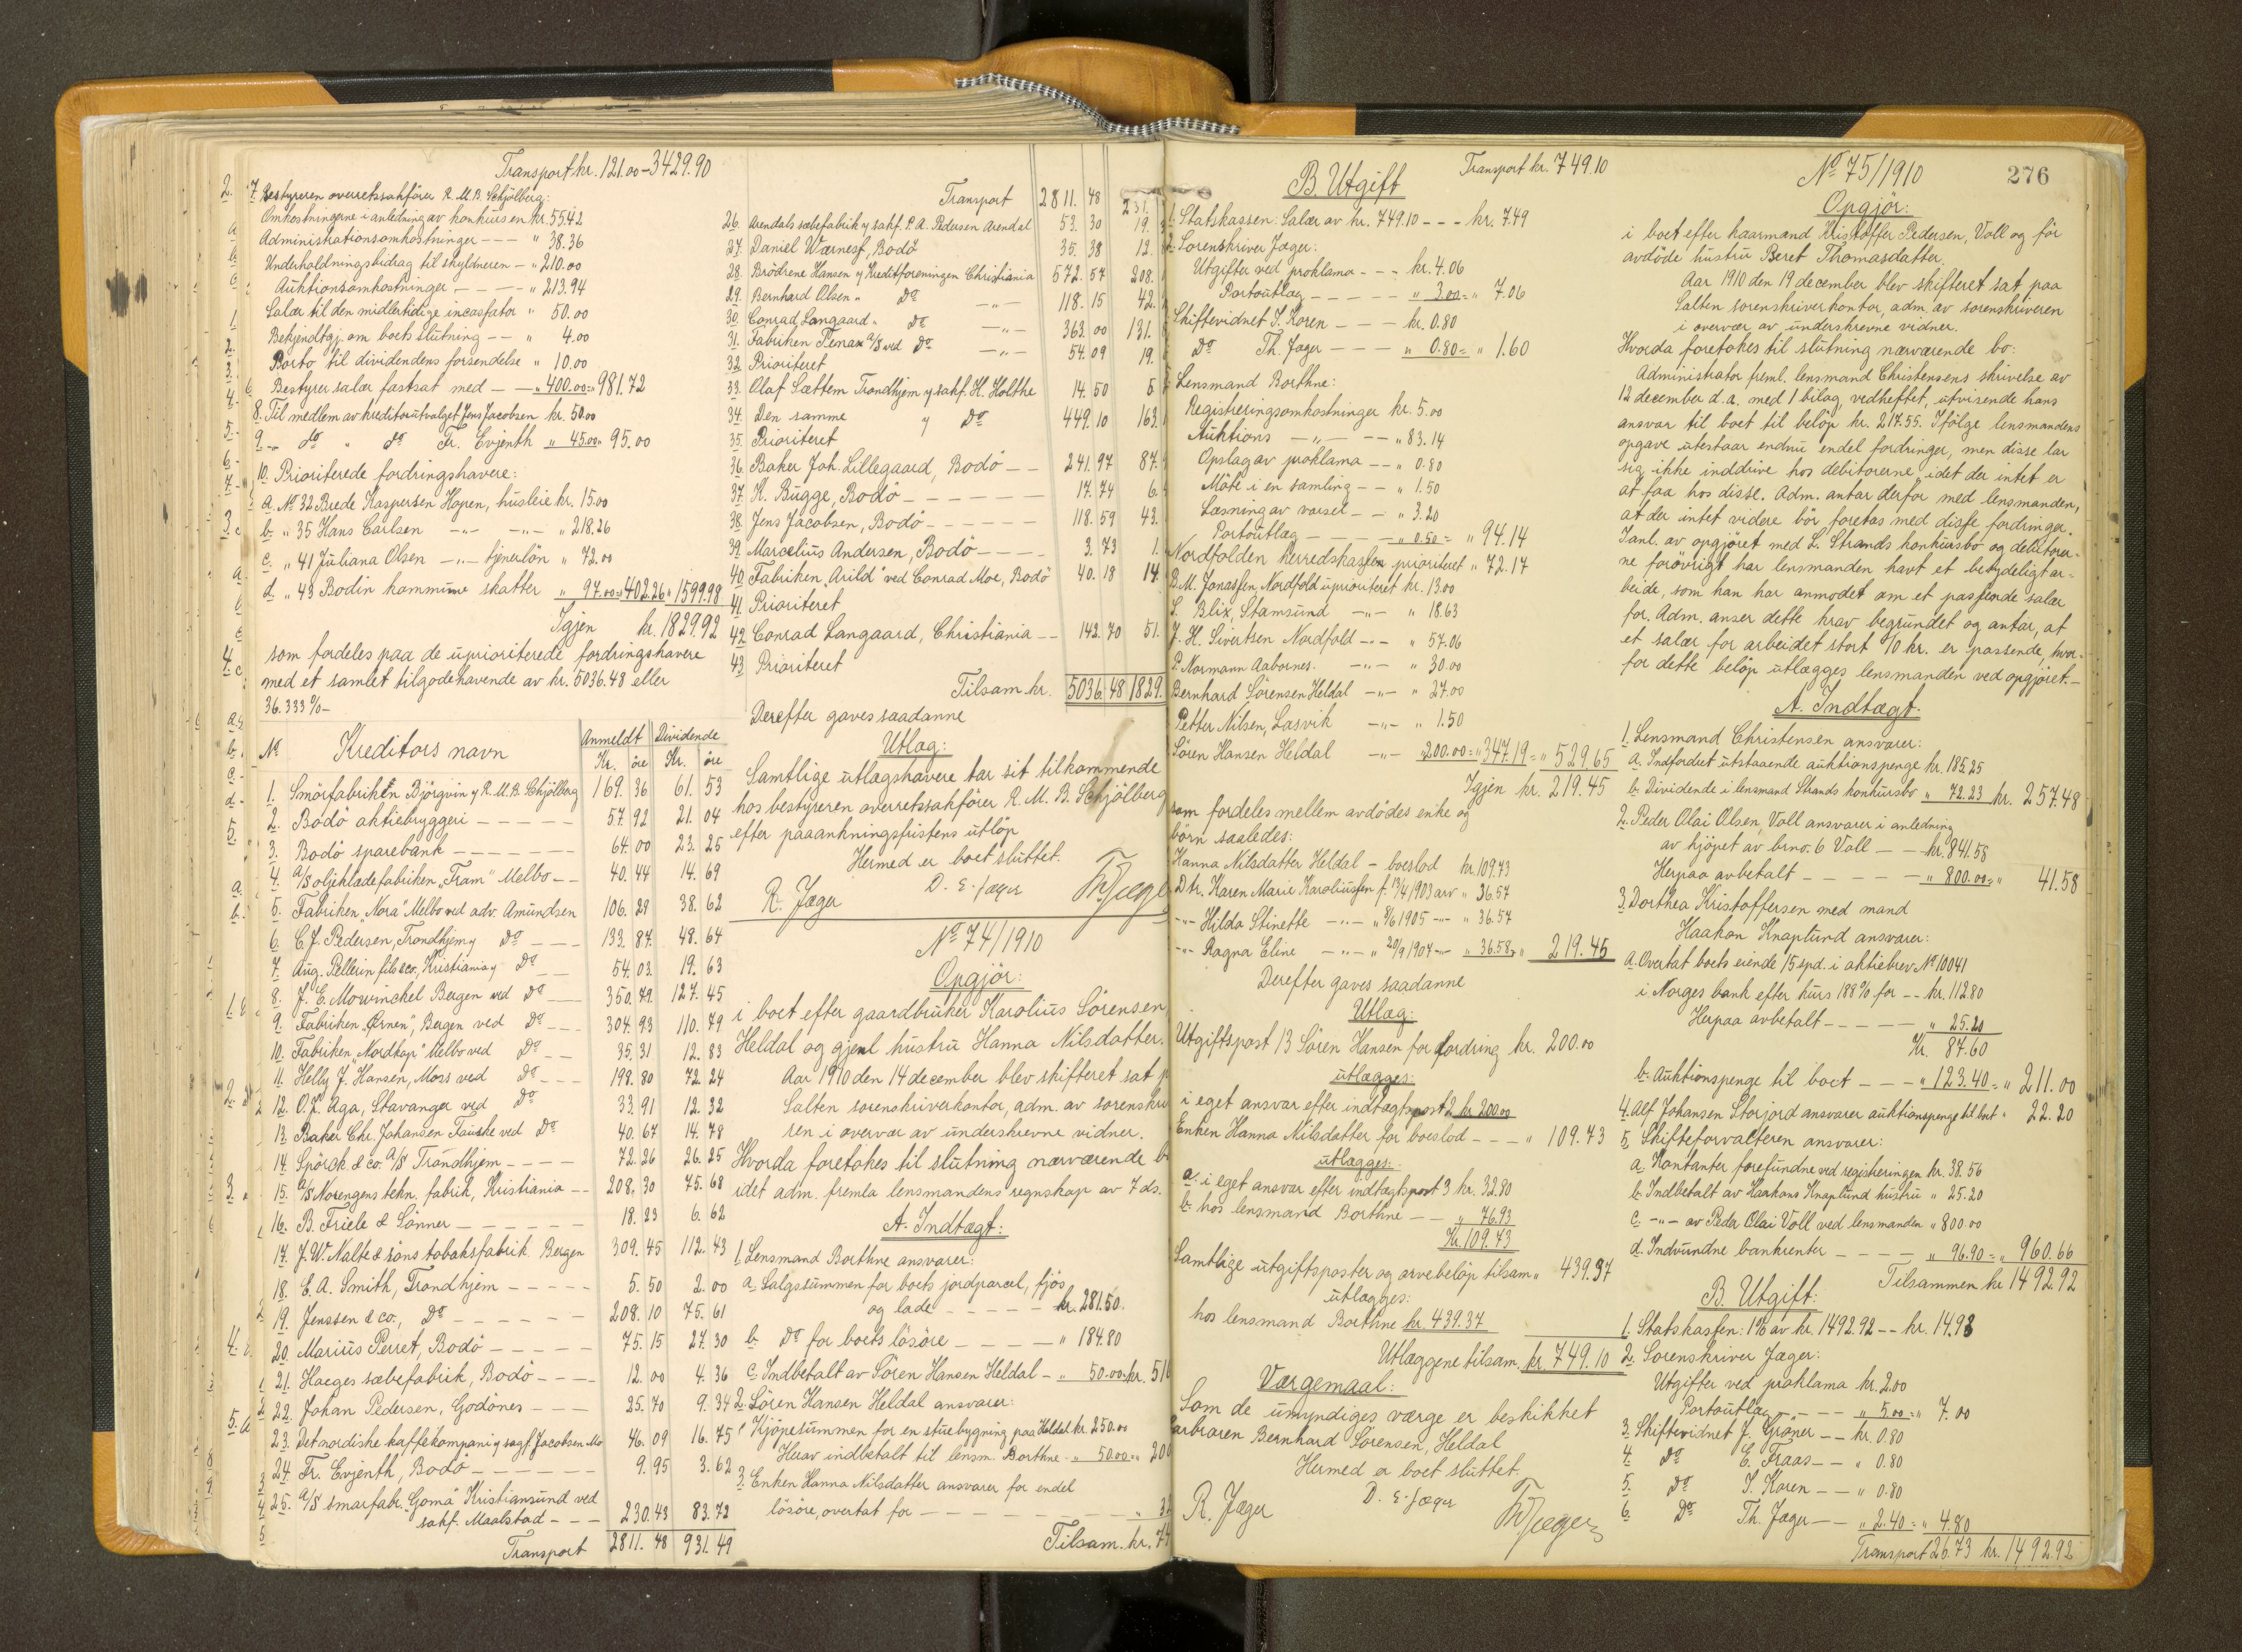 Transport kr. 121.00 - 3429.90
7. Bestyreren overretssakfører R. M. B. Schjölberg:
Omkostningerne i anledning av konkursen kr. 55.42
Administrationsomkostninger - - - " 38.36
Underholdningsbidrag til skyldneren - " 210.00
Auktionsomkostninger - - - - " 213.94
Salær til den midlertidige incassator " 50.00
Bekjendtgj. om boets slutning - - " 4.00
Porto til dividendens forsendelse " 10.00
Bestyrer salær fastsat med - - " 400.00 = 981.72
8. Til medlem av kreditorutvalget Jens Jacobsen kr. 50.00
9. - do " do Fr. Evjenth " 45.00 " 95.00
10. Prioriterede fordringshavere:
a. No 32 Brede Kaspersen Hopen, husleie kr. 15.00
b. " 35 Hans Carlsen -"- -"- " 218.26
c. " 41 Juliana Olsen -"- tjenerlön " 72.00
d. " 43 Bodin kommune skatter " 97.00 = 402.26 " 1599.98
Igjen kr. 1829.92
som fordeles paa de uprioriterede fordringshavere
med et samlet tilgodehavende av kr. 5036.48 eller
36.333 % -
No Kreditors navn Anmeldt Dividende
Kr. öre Kr. öre
1. Smörfabriken Björgvin v R. M. B. Schjölberg 169. 36 61. 53
2. Bodö aktiebryggeri - - - - - 57. 92 21. 04
3. Bodö sparebank - - - - - - 64. 00 23. 25
4. A/S oljeklædefabriken "Fram" Melbo - - 40. 44 14. 69
5. Fabriken "Nora" Melbo ved adv. Amundsen 106. 29 38. 62
6. C. J. Pedersen, Trondhjem v Do - - - 133. 87. 48. 64
7. Aug. Pellerin fils & co., Kristiania v Do - - 54. 03. 19. 63
8. J. E. Mowinckel Bergen ved Do - - 350. 79. 127. 45
9. Fabriken "Örnen", Bergen ved Do - - - 304. 93 110. 79
10. Fabriken "Nordkap" Melbo ved Do - - 35. 31 12. 83
11. Helly J. Hansen, Moss ved Do - - - 198. 80 72. 24
12. O. J. Aga, Stavanger ved Do 33. 91 12. 32
13. Baker Chr. Johansen Fauske ved Do 40. 67 14. 78
14. Spörck & co. A/S Trondhjem - - - - 72. 26 26. 25
15. A/S Norengens tekn. fabrik, Kristiania - - 208. 30 75. 68
16. B. Friele & Sönner - - - - - - 18. 23 6. 62
17. J. W. Nalte & söns tobaksfabrik Bergen 309. 45 112. 43
18. E. A. Smith, Trondhjem - - - - - 5. 50 2. 00
19. Jenssen & co., Do - - - - - - 208. 10 75. 61
20. Marius Perret, Bodö - - - - - 75. 15 27. 30
21. Haeges sæbefabrik, Bodö - - - - 12. 00 4. 36
22. Johan Pedersen, Godönes - - - 25. 70 9. 34
23. Det nordiske kaffekompani v sagf. Jacobsen Mo 46. 09 16. 75
24. Fr. Evjenth, Bodö - - - - - - 9. 95 3. 62
25. A/S smörfabr. "Goma" Kristiansund ved
sakf. Maalstad - - - 230. 43 83. 72
Transport 2811. 48 931. 49
Transport 2811. 48 931.
26. Arendals sæbefabrik v sakf. P. A. Pedersen Arendal 53. 30 19.
27. Daniel Wærnesf, Bodö 35. 38 12.
28. Brödrene Hansen v Kreditforeningen Christiania 572. 57 208.
29. Bernhard Olsen " Do -"- 118. 15 42.
30. Conrad Langaard " Do -"- 363. 00 131.
31. Fabriken Tenax A/S ved Do -"- 54. 09 19.
32. Prioriteret
33. Olaf Sættem Trondhjem v sakf. H. Holthe 14. 50 5.
34. Den samme v Do 449. 10 163.
35. Prioriteret
36. Baker Joh. Lillegaard, Bodö - - 241. 97 87.
37. K. Bugge, Bodö - - - - - - 17. 74 6.
38. Jens Jacobsen, Bodö - - - - - 118. 59 43.
39. Marcelius Andersen, Bodö - - - - 3. 73 1.
40. Fabriken "Arild" ved Conrad Moe, Bodö 40. 18 14.
41. Prioriteret
42. Conrad Langaard, Christiania - - 142. 70 51.
43. Prioriteret
Tilsam. kr. 5036. 48 1829.
Derefter gaves saadanne
Utlæg:
Samtlige utlægshavere tar sit tilkommende
hos bestyreren overretssakförer R. M. B. Schjölberg
efter paaankningsfristens utlöp
Hermed er boet sluttet.
R. Jæger D. E. Jæger Th. Jæger
No 74/1910
Opgjör:
i boet efter gaardbruker Karolius Sörensen,
Heldal og gjenl hustru Hanna Nilsdatter.
Aar 1910 den 14 december blev skifteret sat p
Salten sorenskriverkontor, adm. av sorenskri
ren i overvær av underskrevne vidner.
Hvorda foretokes til slutning nærværende b
idet adm. fremla lensmandens regnskap av 7 ds.
A. Indtægt:
1. Lensmand Borthne ansvarer:
a. Salgssummen for boets jordparcel, fjös
og lade - - - - - kr. 281.50.
b. Do for boets lösöre - - - - " 184.80
c. Indbetalt av Sören Hansen Heldal - " 50.00 = kr. 516
2. Sören Hansen Heldal ansvarer:
Kjöpesummen for en stuebygning paa Heldal kr. 250.00
Herav indbetalt til lensm. Borthne - " 50.00 = " 200
3. Enken Hanna Nilsdatter ansvarer for endel
lösöre, overtat for - - - - - - - " 32
Tilsam. kr. 74
Transport kr. 749.10
B. Utgift
1. Statskassen: Salær av kr. 749.10 - - - kr. 7.49
2. Sorenskriver Jæger:
Utgifter ved proklama - - - kr. 4.06
Portoutlæg - - - - - " 3.00 = " 7.06
Skiftevidnet I. Koren - - - kr. 0.80
Do Th. Jæger - - - " 0.80 = " 1.60
Lensmand Borthne:
Registreringsomkostninger kr. 5.00
Auktions - " - - - " 83.14
Opslag av proklama - - " 0.80
Möte i en samling - - " 1.50
Læsning av varsel - - " 3.20
Portoutlæg - - - - - " 0.50 = " 94.14
Nordfolden herredskassen prioriteret " 72.17
B. M. Jonassen, Nordfold uprioriteret kr. 13.00
L. Blix, Stamsund -"- " 18.63
J. H. Sivertsen Nordfold -"- " 57.06
P. Normann Aabornes. -"- " 30.00
Bernhard Sörensen Heldal -"- " 27.00
Petter Nilsen, Lasvik -"- " 1.50
Sören Hansen Heldal -"- " 200.00 = " 347.19 = " 529.65
Igjen kr. 219.45
som fordeles mellem avdödes enke og
börn saaledes:
Hanna Nilsdatter Heldal - boeslod kr. 109.73
Dtr. Karen Marie Karoliussen f. 13/4 1903 arv " 36.57
-"- Hilda Stinette -"- " 8/6 1905 -"- " 36.57
-"- Ragna Eline -"- " 20/9 1907 -"- " 36.58 = " 219.45
Derefter gaves saadanne
Utlæg:
Utgiftspost 13 Sören Hansen for fordring kr. 200.00
utlægges:
i eget ansvar efter indtægtspost 2 kr 200.00
Enken Hanna Nilsdatter for boeslod - - - " 109.73
utlægges:
a. i eget ansvar efter indtægtspost 3 kr. 32.80
b. hos lensmand Borthne - - " 76.93
Kr. 109.73
Samtlige utgiftsposter og arvebelöp tilsam " 439.37
utlægges:
hos lensmand Borthne kr. 439.37
Utlæggene tilsam. kr. 749.10
Værgemaal:
Som de umyndiges værge er beskikket
farbroren Bernhard Sörensen, Heldal
Hermed er boet sluttet.
R. Jæger D. E. Jæger Th. Jæger
276
No 75/1910
Opgjör:
i boet efter kaarmand Kristoffer Pedersen, Voll og för
avdöde hustru Beret Thomasdatter.
Aar 1910 den 19 december blev skifteret sat paa
Salten sorenskriverkontor, adm. av sorenskriveren
i overvær av underskrevne vidner.
Hvorda foretokes til slutning nærværende bo:
Administrator freml. lensmand Christensens skrivelse av
12 december d.a. med 1 bilag, vedheftet, utvisende hans
ansvar til boet til belöp kr. 217.55. Ifölge lensmandens
opgave utestaar endnu endel fordringer, men disse lar
sig ikke inddrive hos debitorerne, idet der intet er
at faa hos disse. Adm. antar derfor med lensmanden,
at der intet videre bör foretas med disse fordringer.
I anl. av opgjöret med L. Strands konkursbo og debitorer-
ne forövrigt har lensmanden havt et betydeligt ar-
beide, som han har anmodet om et passende salær
for. Adm. anser dette krav begrundet og antar, at
et salær for arbeidet stort 40 kr. er passende, hvor-
for dette belöp utlægges lensmanden ved opgjöret. -
A. Indtægt.
1. Lensmand Christensen ansvarer:
a. Indfordret utstaaende auktionspenge kr. 185.25
b. Dividende i lensmand Strands konkursbo " 72.23 kr. 257.48
2. Peder Olai Olsen, Voll ansvarer i anledning
av kjöpet av brno. 6 Voll - - kr. 841.58
Herpaa avbetalt - - - - - " 800.00 = " 41.58
3. Dorthea Kristoffersen med mand
Haakon Knaplund ansvarer:
a. Overtat boets eiende 15 spd. i aktiebrev No 10041
i Norges bank efter kurs 188% for - - kr. 112.80
Herpaa avbetalt - - - - - " 25.20
Kr. 87.60
b. Auktionspenge til boet - - - " 123.40 = " 211.00
4. Alf Johansen Storjord ansvarer auktionspenge til boet " 22.20
5. Skifteforvalteren ansvarer:
a. Kontanter forefundne ved registreringen kr. 38.56
b. Indbetalt av Haakons Knaplund hustru " 25.20
c. -"- av Peder Olai Voll ved lensmanden " 800.00
d. Indvundne bankrenter - - - - " 96.90 = " 960.66
Tilsammen kr 1492.92
B. Utgift:
1. Statskassen: 1% av kr. 1492.92 - - kr. 14.93
2. Sorenskriver Jæger:
Utgifter ved proklama kr. 2.00
Portoutlæg - - - - " 5.00 = " 7.00
3. Skiftevidnet J. Gröner - - kr. 0.80
4. Do E. Fraas - - " 0.80
5. Do I. Koren - - " 0.80
6. Do Th. Jæger - - " 2.40 = " 4.80
Transport 26.73 kr. 1492.92